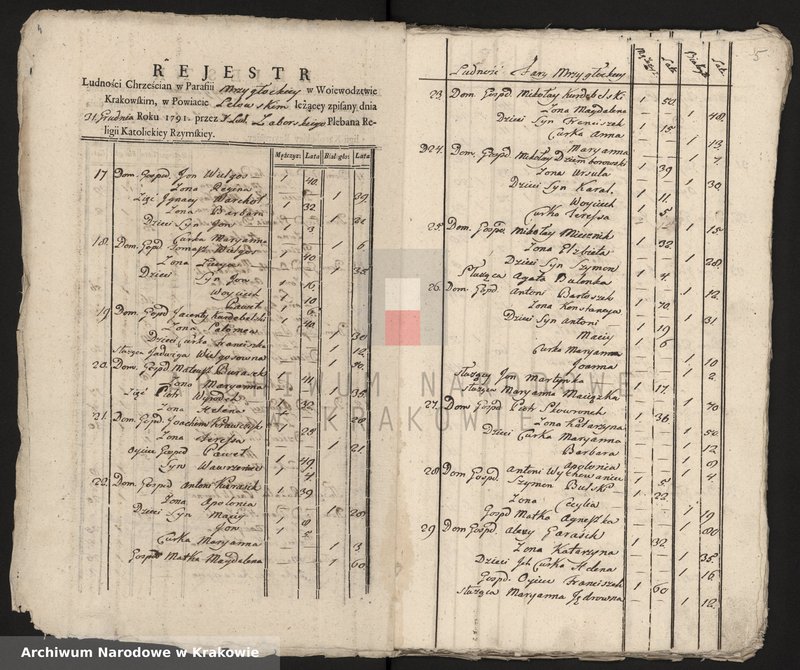 REJESTR
Ludności Chrześcian w Parafii Mrzygłockiey w Woiewodztwie
Krakowskim, w Powiacie Lelowskim leżącey zpisany dnia
31 Grudnia Roku 1791. przez X Lud. Zaborskiego Plebana Re-
ligii Katolickiey Rzymskiey.
Mężczyz: Lata Białogło: Lata
17 Dom. Gospod Jan Wielgos 1 40
Zona Regina 1 39
Zięć Ignacy 1 32
Zona Barbara 1 21
Dzieci Syn Jan 1 3
Curka Maryanna 1 6
18. Dom. Gospd Tomasz Wielgos 1 40
Zona 1 35
Dzieci Syn Jan 1 16
Woyciech 1 10
Paweł 1 6
19 Dom. Gospd Jacenty 1 40
Zona Salomea 1 30
Dzieci Curka Franciszka 1 12
Służąca Jadwiga Wielgosowna 1
20. Dom. Gospod Mateusz 1
Zona Maryanna 1 35
Zięć Piotr 1 32
Zona Helena 1 20
21. Dom. Gospd. Joachim Krawczyk 1 25
Zona Teressa 1 21
Oyciec Gospod Paweł 1 49
Syn Wawrzeniec 1 4
22. Dom. Gospod Antoni Karasik 1 39
Zona Apolonia 1 28
Dzieci Syn Maciy 1 8
Jan 1 5
Curka Maryanna 1 3
Gospod Matka Magdalena 1 60
5
Ludność Fary Mrzygłockiey
Lata Lata
23. Dom. Gospod Mikołay 1 50
Zona Magdalena 1 48
Dzieci Syn Franciszek 1 15
Curka Anna 1 13
Maryanna 1 7
24. Dom. Gospod Mikołay 1 39
Zona Ursula 1 30
Dzieci Syn Karol 1 11
Woyciech 1 5
Curka Teressa 1 15
25. Dom. Gospod Mikołay Miecznik 1 32
Zona Elżbieta 1 28
Dzieci Syn Szymon 1 4
Służąca Agata 1 12
26. Dom. Gospd Antoni Bartoszek 1 40
Zona Konstancya 1 31
Dzieci Syn Antoni 1 19
Maciy 1 6
Curka Maryanna 1 10
Joanna 1 2
Służący Jan Martynka 1 17
Służąca Maryanna 1 40
27. Dom Gospod Piotr Skowronek 1 36
Zona Katarzyna 1 50
Dzieci Curka Maryanna 1 12
Barbara 1 8
Apolonia 1 4
28 Dom Gospod. Antoni
Szymon 1 22
Zona Cecylia 1 19
Gospd Matka Agneszka 1 60
29 Dom Gospod. Alexy Garasik 1 32
Zona Katarzyna 1 35
Dzieci Curka Helena 1 16
Gospod. Oyciec Franciszek 1 60
Służąca Maryanna 1 12
ARCHIWUM NARODOWE
W KRAKOWIE
Archiwum Narodowe w Krakowie